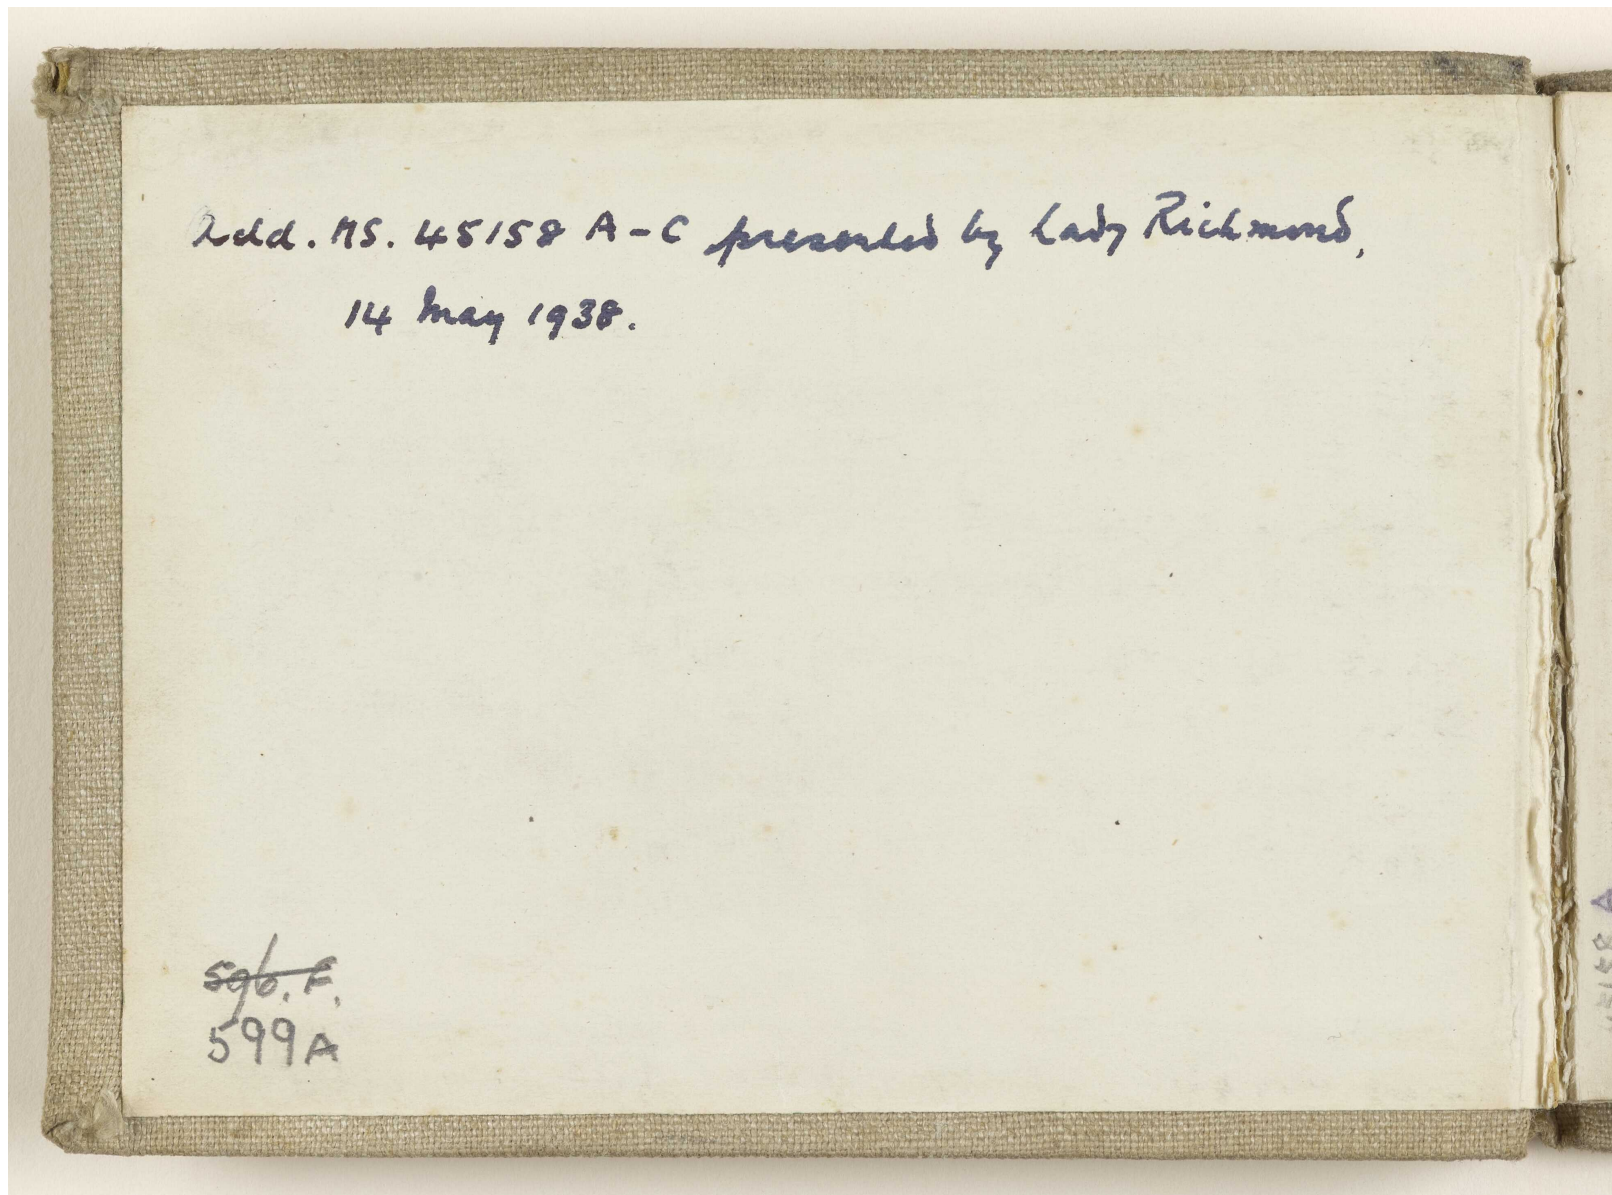 Add. MS. 45158 A-C presented by Lady Richmond,
14 May 1938.
596. F.
599A
45158 A